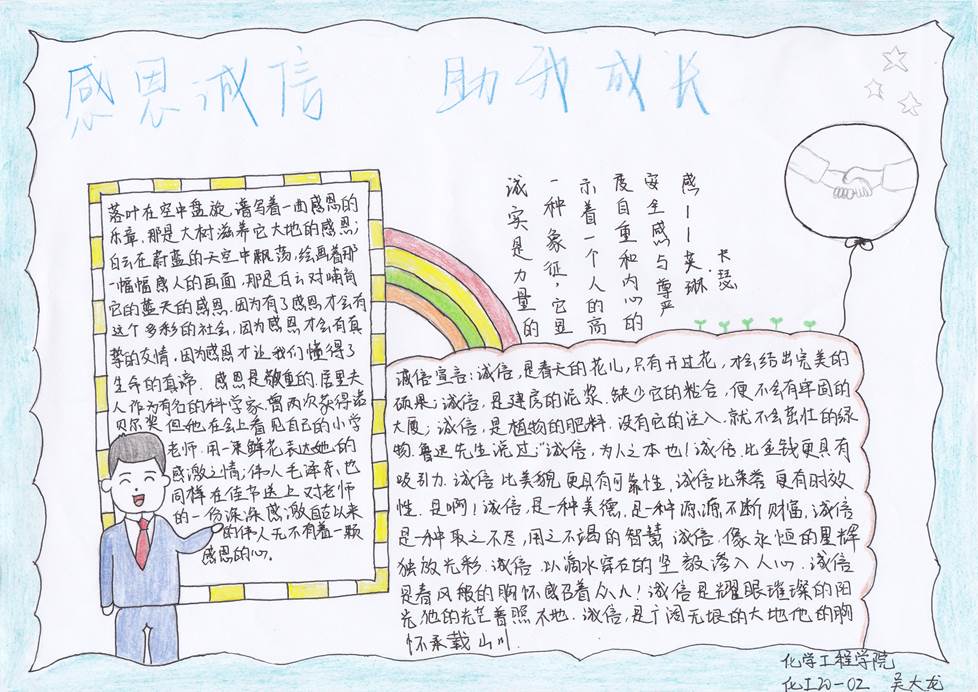 感恩诚信 助我成长
落叶在空中盘旋,谱写着一曲感恩的
乐章,那是大树滋养它大地的感恩;
白云在蔚蓝的天空中飘荡,绘画着那
一幅幅感人的画面,那是白云对哺育
它的蓝天的感恩。因为有了感恩,才会有
这个多彩的社会,因为感恩才会有真
挚的友情,因为感恩才让我们懂得了
生命的真谛.感恩是敬重的.居里夫
人作为有名的科学家,曾两次获得诺
贝尔奖,但她在会上看见自己的小学
老师.用一束鲜花表达她的
感激之情;伟人毛泽东,也
同样在佳节送上对老师
的一份深深感激,自古以来
的伟人无不有着一颗
感恩的心。
诚实是力量的
一种象征,它显
示着一个人的高
度自重和内心的
安全感与尊严
感——艾琳·卡瑟
诚信宣言:诚信,是春天的花儿,只有开过花,才会结出完美的
硕果;诚信,是建房的泥浆.缺少它的粘合,便不会有牢固的
大厦;诚信,是植物的肥料.没有它的注入,就不会茁壮的绿
物.鲁迅先生说过:"诚信,为人之本也!诚信,比金钱更具有
吸引力.诚信比美貌更具有可靠性,诚信比荣誉更有时效
性.是啊!诚信,是一种美德,是一种源源不断财富,诚信
是一种取之不尽,用之不竭的智慧.诚信.像永恒的星辉
独放光彩.诚信.以滴水穿石的坚毅渗入人心.诚信
是春风般的胸怀感召着众人!诚信是耀眼璀璨的阳
光,他的光芒普照大地.诚信,是广阔无垠的大地他的胸
怀承载山川.
化学工程学院
化工20-02 吴大龙